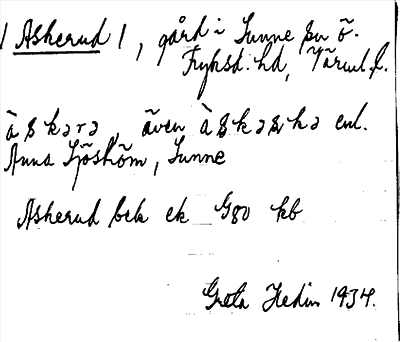 / Askerud /, gård i Sunne sn ö.
Fryksd. hd, Värml. l.
àskərə, även àskəshə enl.
Anna Sjöström, Sunne
Askerud bek ek G80 kb
Greta Hedin 1934.